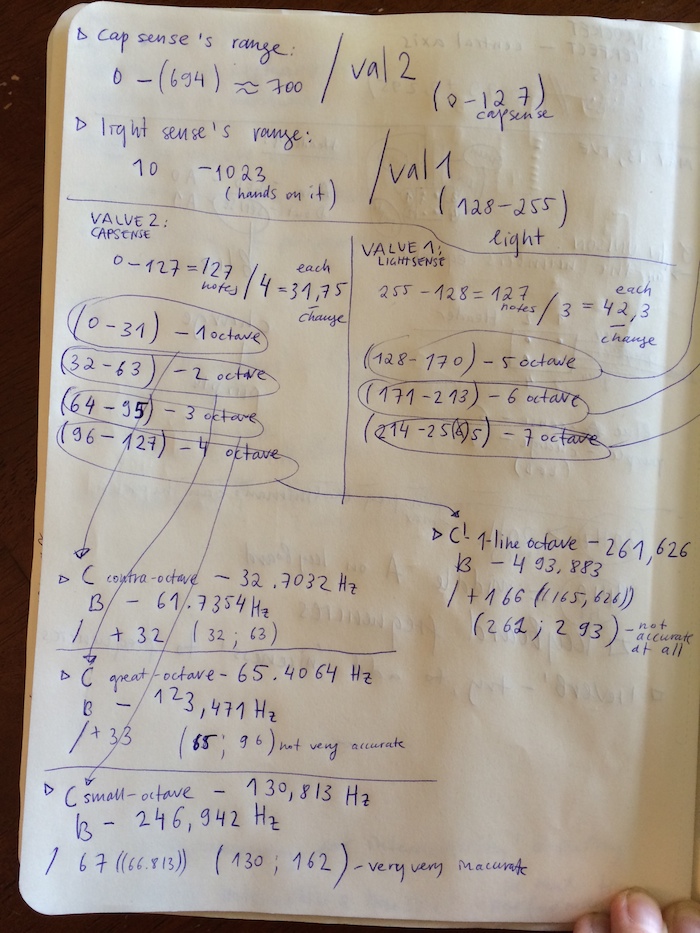 ▷ cap sense's range:
0 – (694) ≈ 700 / val 2
(0–127)
capsense
▷ light sense's range:
10 – 1023 /val 1
(hands on it)
(128–255)
light
VALVE 2:
CAPSENSE
0–127 = 127 notes / 4 = 31,75 each change
(0–31) – 1 octave
(32–63) – 2 octave
(64–95) – 3 octave
(96–127) – 4 octave
VALVE 1:
LIGHTSENSE
255 – 128 = 127 notes / 3 = 42,3 each change
(128–170) – 5 octave
(171–213) – 6 octave
(214–255) – 7 octave
▷ C contra-octave – 32.7032 Hz
B – 61.7354 Hz
/ + 32 (32 ; 63)
▷ C great-octave – 65.4064 Hz
B – 123,471 Hz
/ +33 (65 ; 96) not very accurate
▷ C small-octave – 130,813 Hz
B – 246,942 Hz
/ 67 ((66.813)) (130 ; 162) – very very inacurate
▷ C' 1-line octave – 261,626
B – 493,883
/ +166 ((165,626))
(262 ; 293) – not accurate at all